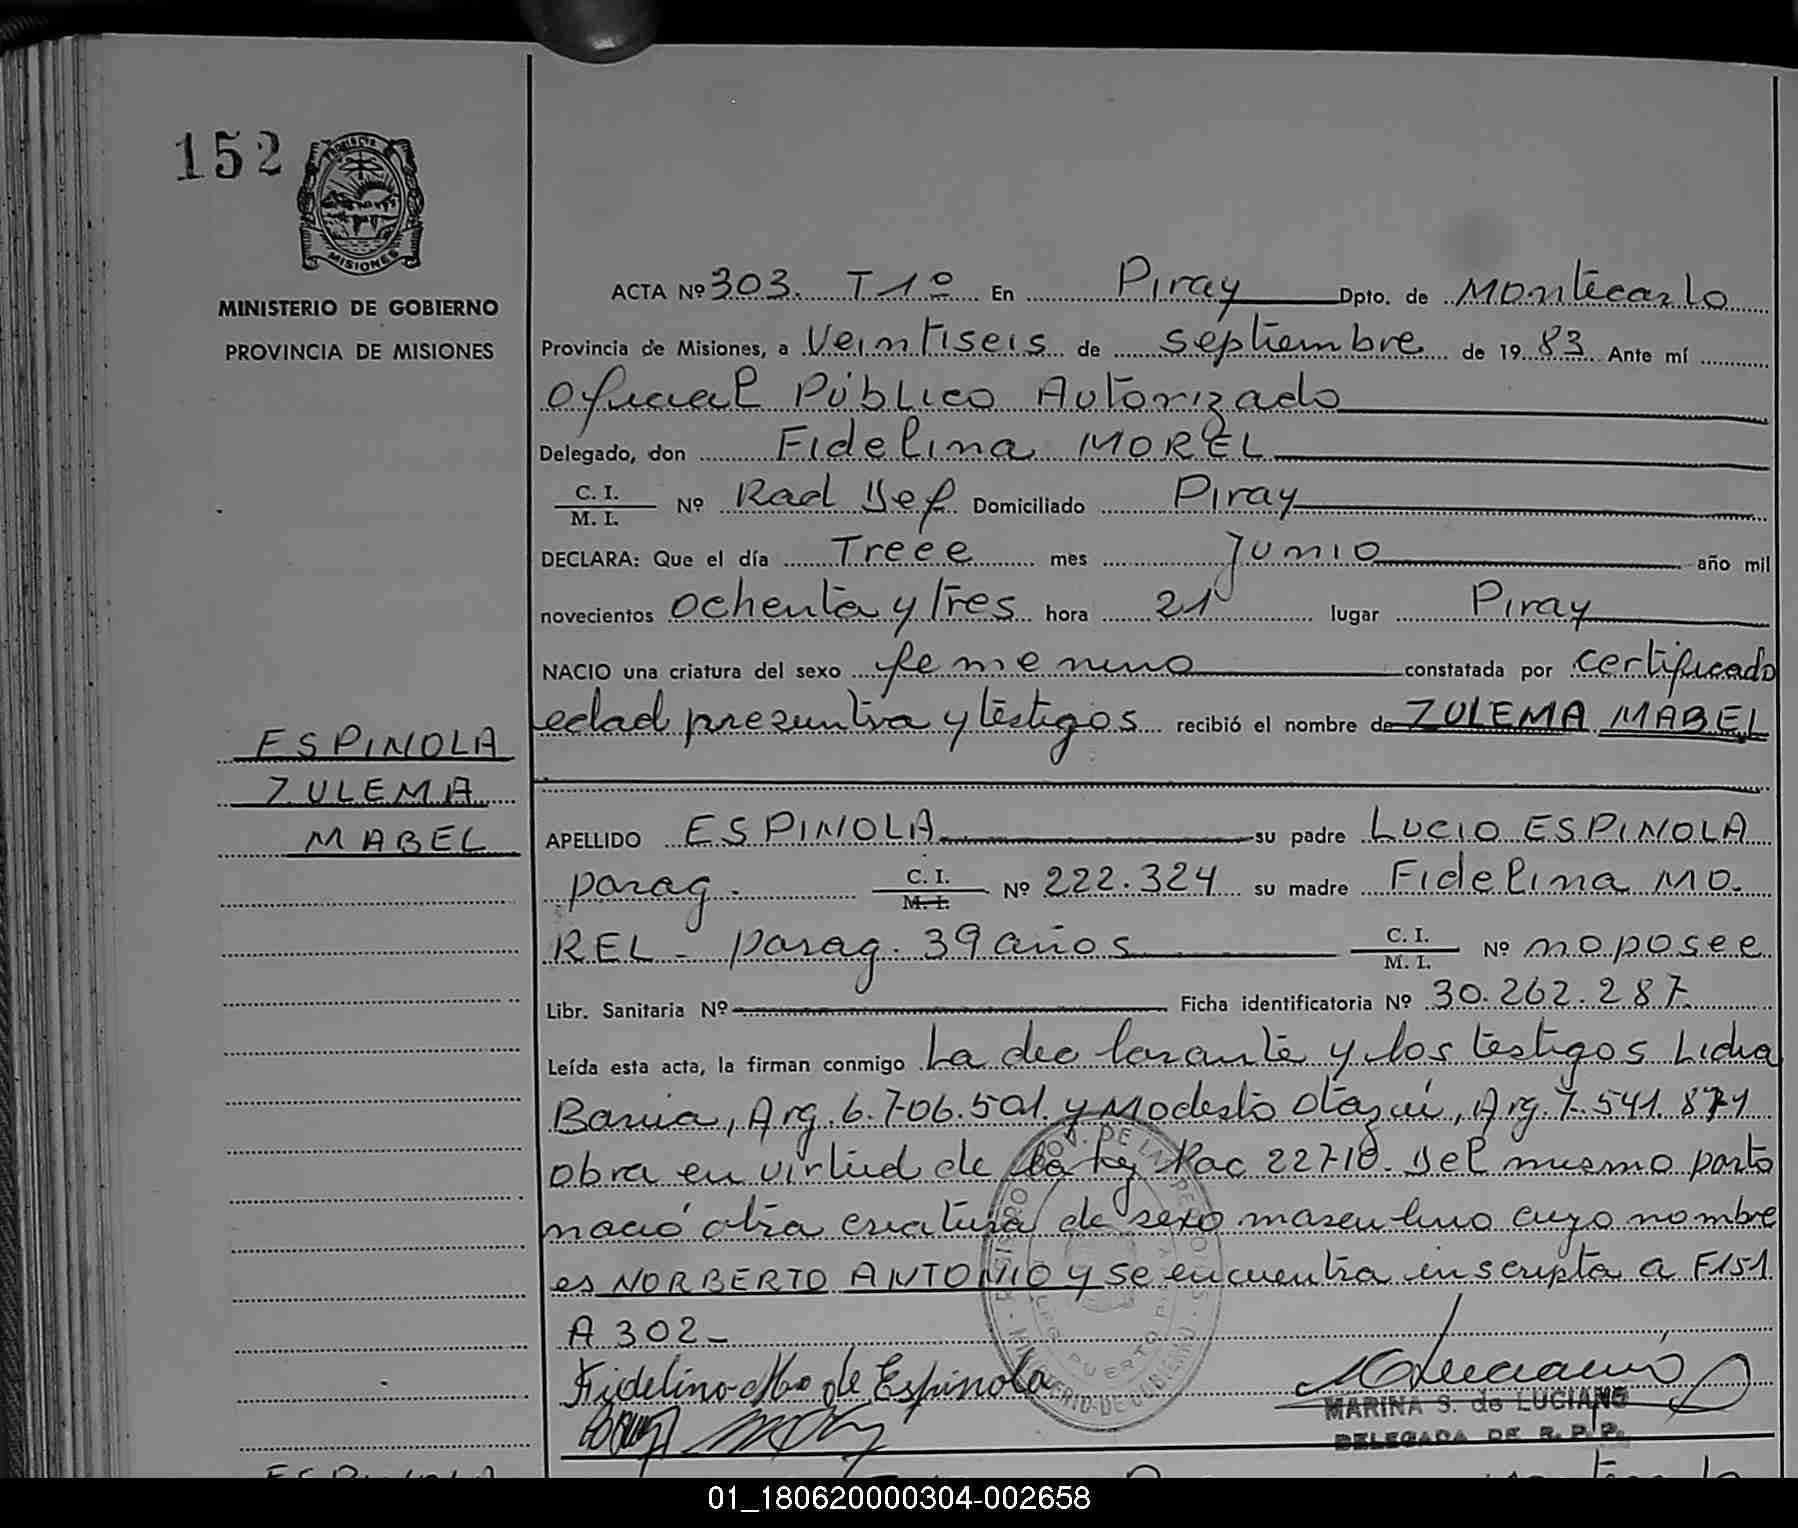 152
PROVINCIA
MISIONES
MINISTERIO DE GOBIERNO
PROVINCIA DE MISIONES
ESPINOLA
ZULEMA
MABEL
ACTA Nº 303. T 1º En Piray Dpto. de Montecarlo
Provincia de Misiones, a Veintiseis de septiembre de 19 83 Ante mí
Oficial Público Autorizado
Delegado, don Fidelina MOREL
C. I. / M. I. Nº Rad Def Domiciliado Piray
DECLARA: Que el día Trece mes Junio año mil
novecientos ochenta y tres hora 21 lugar Piray
NACIO una criatura del sexo femenino constatada por certificado
edad presuntiva y testigos recibió el nombre de ZULEMA MABEL
APELLIDO ESPINOLA su padre LUCIO ESPINOLA
parag. C. I. / M. I. Nº 222.324 su madre Fidelina MO.
REL - parag. 39 años C. I. / M. I. Nº no posee
Libr. Sanitaria Nº Ficha identificatoria Nº 30.262.287
Leída esta acta, la firman conmigo La declarante y los testigos Lidia
Barua, Arg. 6.706.501. y Modesto Otazui, Arg. 7.541.871
obra en virtud de la ley Nac 22710. Del mismo parto
nació otra criatura de sexo masculino cuyo nombre
es NORBERTO ANTONIO y se encuentra inscripta a F151
A 302-
Fidelina Mo de Espinola
MARINA S. de LUCIANO
DELEGADA DE R. P. P.
01_180620000304-002658